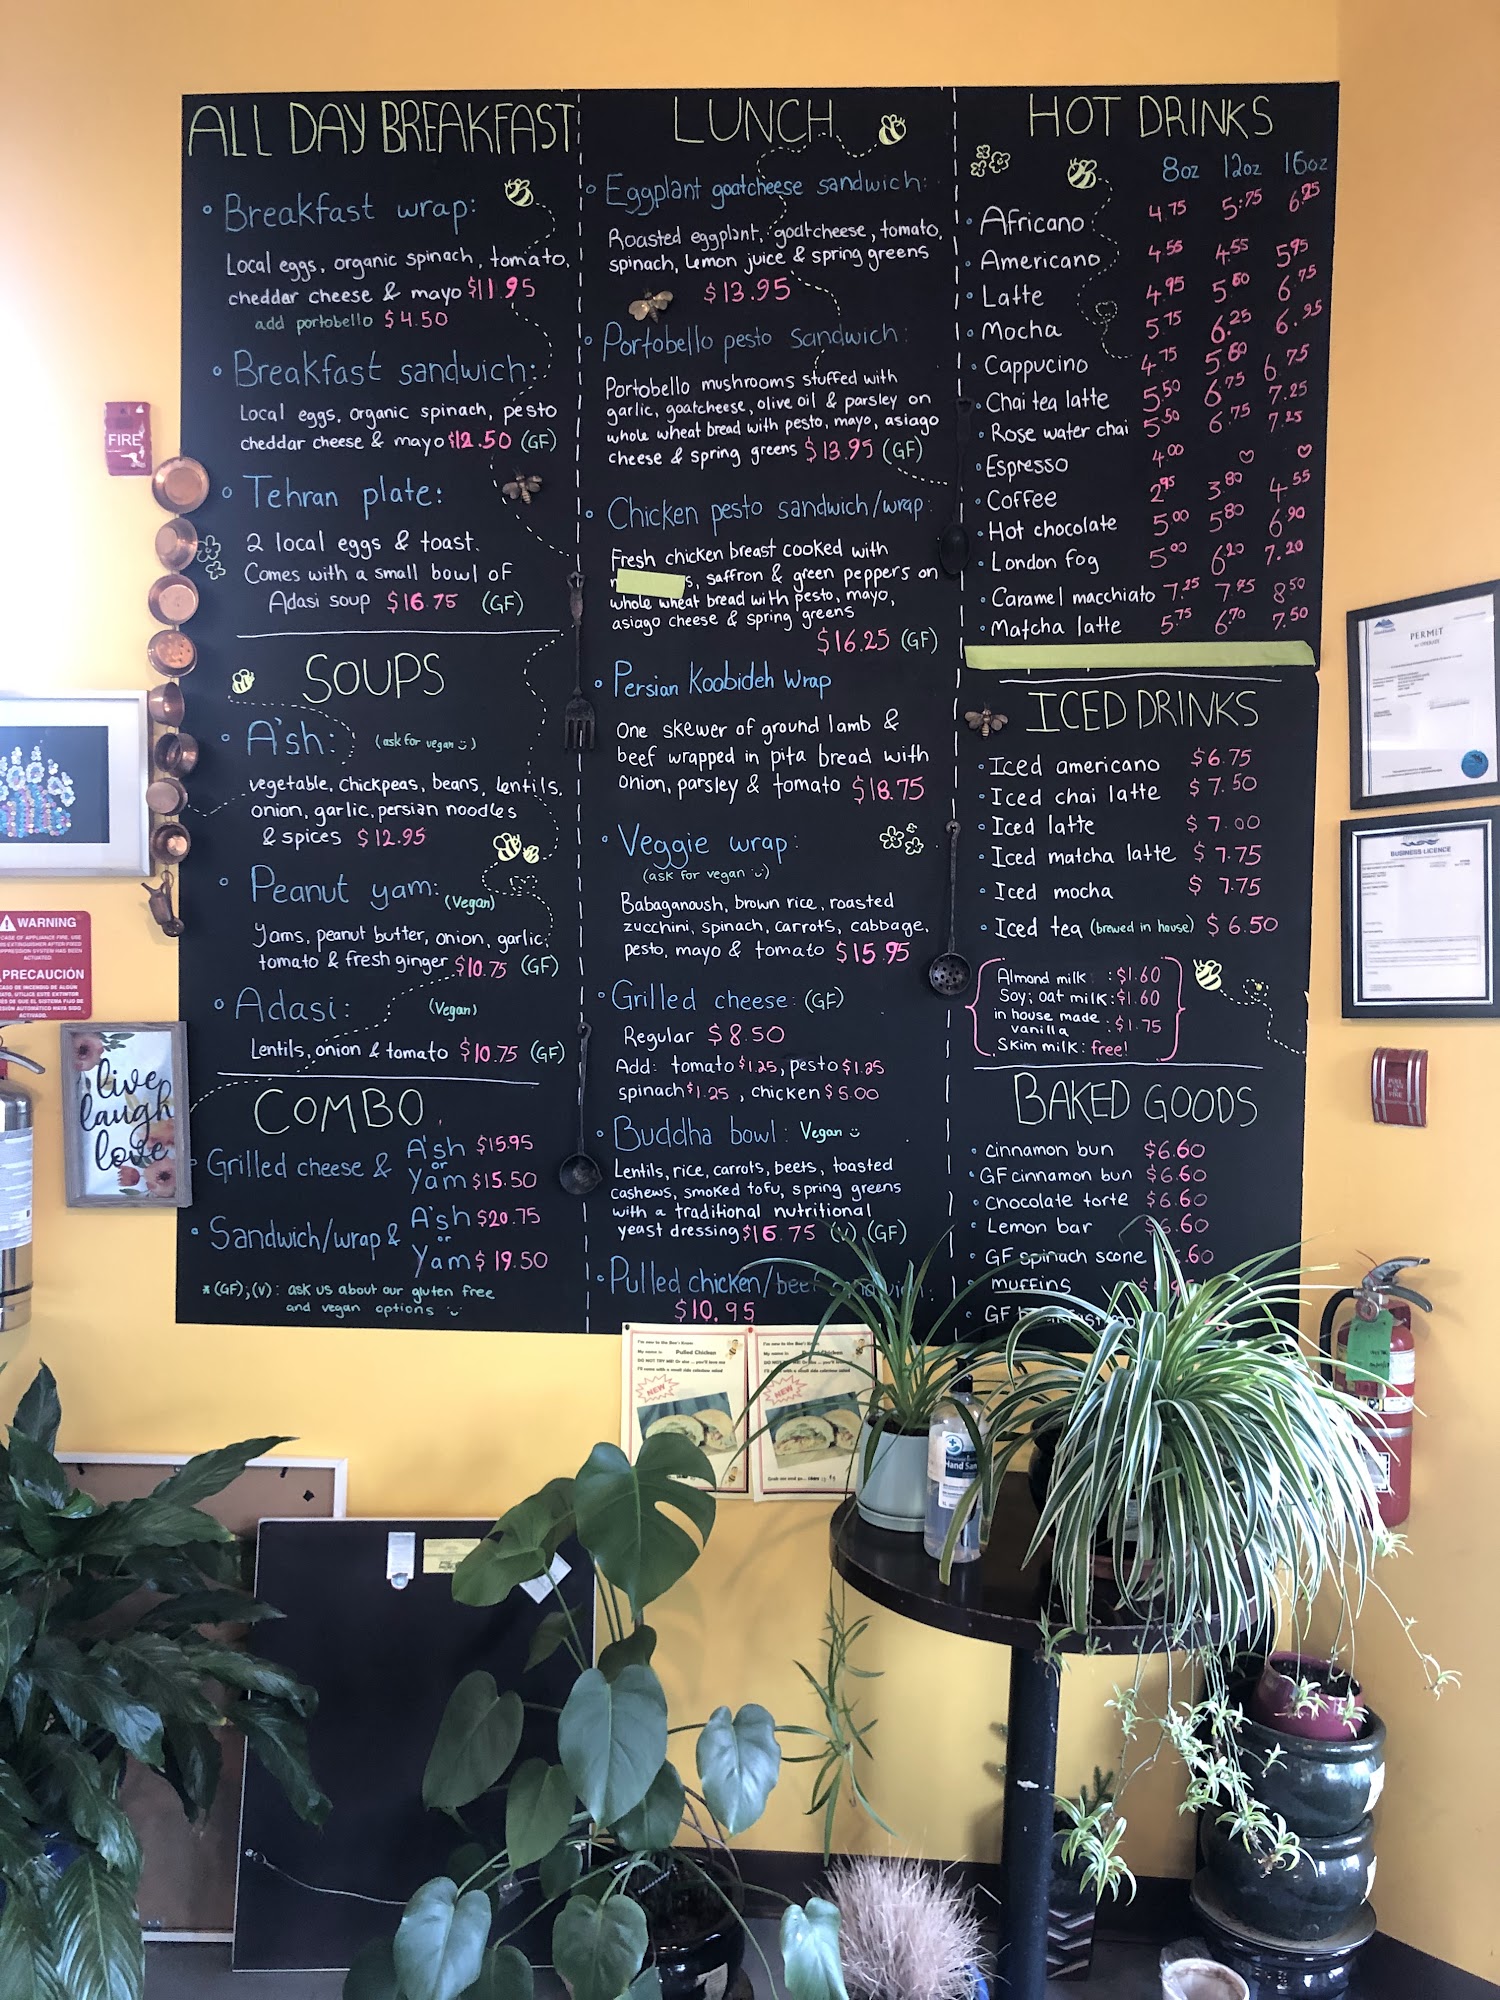 ALL DAY BREAKFAST
Breakfast wrap:
Local eggs, organic spinach, tomato,
cheddar cheese & mayo $11.95
add portobello $4.50
Breakfast sandwich:
Local eggs, organic spinach, pesto
cheddar cheese & mayo $12.50 (GF)
Tehran plate:
2 local eggs & toast.
Comes with a small bowl of
Adasi soup $16.75 (GF)
SOUPS
A'sh: (ask for vegan)
vegetable, chickpeas, beans, lentils,
onion, garlic, persian noodles
& spices $12.95
Peanut yam: (Vegan)
Yams, peanut butter, onion, garlic,
tomato & fresh ginger $10.75 (GF)
Adasi: (Vegan)
Lentils, onion & tomato $10.75 (GF)
COMBO
Grilled cheese & A'sh $15.95
or
Yam $15.50
Sandwich/wrap & A'sh $20.75
or
Yam $19.50
*(GF);(V): ask us about our gluten free
and vegan options
LUNCH
Eggplant goatcheese sandwich:
Roasted eggplant, goatcheese, tomato,
spinach, Lemon juice & spring greens
$13.95
Portobello pesto sandwich:
Portobello mushrooms stuffed with
garlic, goatcheese, olive oil & parsley on
whole wheat bread with pesto, mayo, asiago
cheese & spring greens $13.95 (GF)
Chicken pesto sandwich/wrap:
Fresh chicken breast cooked with
saffron & green peppers on
whole wheat bread with pesto, mayo,
asiago cheese & spring greens
$16.25 (GF)
Persian Koobideh Wrap
One skewer of ground lamb &
beef wrapped in pita bread with
onion, parsley & tomato $18.75
Veggie wrap:
(ask for vegan)
Babaganoush, brown rice, roasted
zucchini, spinach, carrots, cabbage,
pesto, mayo & tomato $15.95
Grilled cheese: (GF)
Regular $8.50
Add: tomato $1.25, pesto $1.25
spinach $1.25, chicken $5.00
Buddha bowl: Vegan
Lentils, rice, carrots, beets, toasted
cashews, smoked tofu, spring greens
with a traditional nutritional
yeast dressing $16.75 (V) (GF)
Pulled chicken/beef sandwich:
$10.95
HOT DRINKS
8oz 12oz 16oz
Africano 4.75 5.75 6.25
Americano 4.55 4.55 5.95
Latte 4.95 5.60 6.75
Mocha 5.75 6.25 6.95
Cappucino 4.75 5.60 6.75
Chai tea latte 5.50 6.75 7.25
Rose water chai 5.50 6.75 7.25
Espresso 4.00
Coffee 2.95 3.80 4.55
Hot chocolate 5.00 5.80 6.90
London fog 5.00 6.20 7.20
Caramel macchiato 7.25 7.95 8.50
Matcha latte 5.75 6.70 7.50
ICED DRINKS
Iced americano $6.75
Iced chai latte $7.50
Iced latte $7.00
Iced matcha latte $7.75
Iced mocha $7.75
Iced tea (brewed in house) $6.50
Almond milk : $1.60
Soy; oat milk: $1.60
in house made
vanilla : $1.75
Skim milk: free!
BAKED GOODS
cinnamon bun $6.60
GF cinnamon bun $6.60
Chocolate torte $6.60
Lemon bar $6.60
GF spinach scone .60
muffins
GF
FIRE
WARNING
PRECAUCIÓN
live
laugh
love
PERMIT
BUSINESS LICENCE
My name is Pulled Chicken
NEW
NEW
Hand San